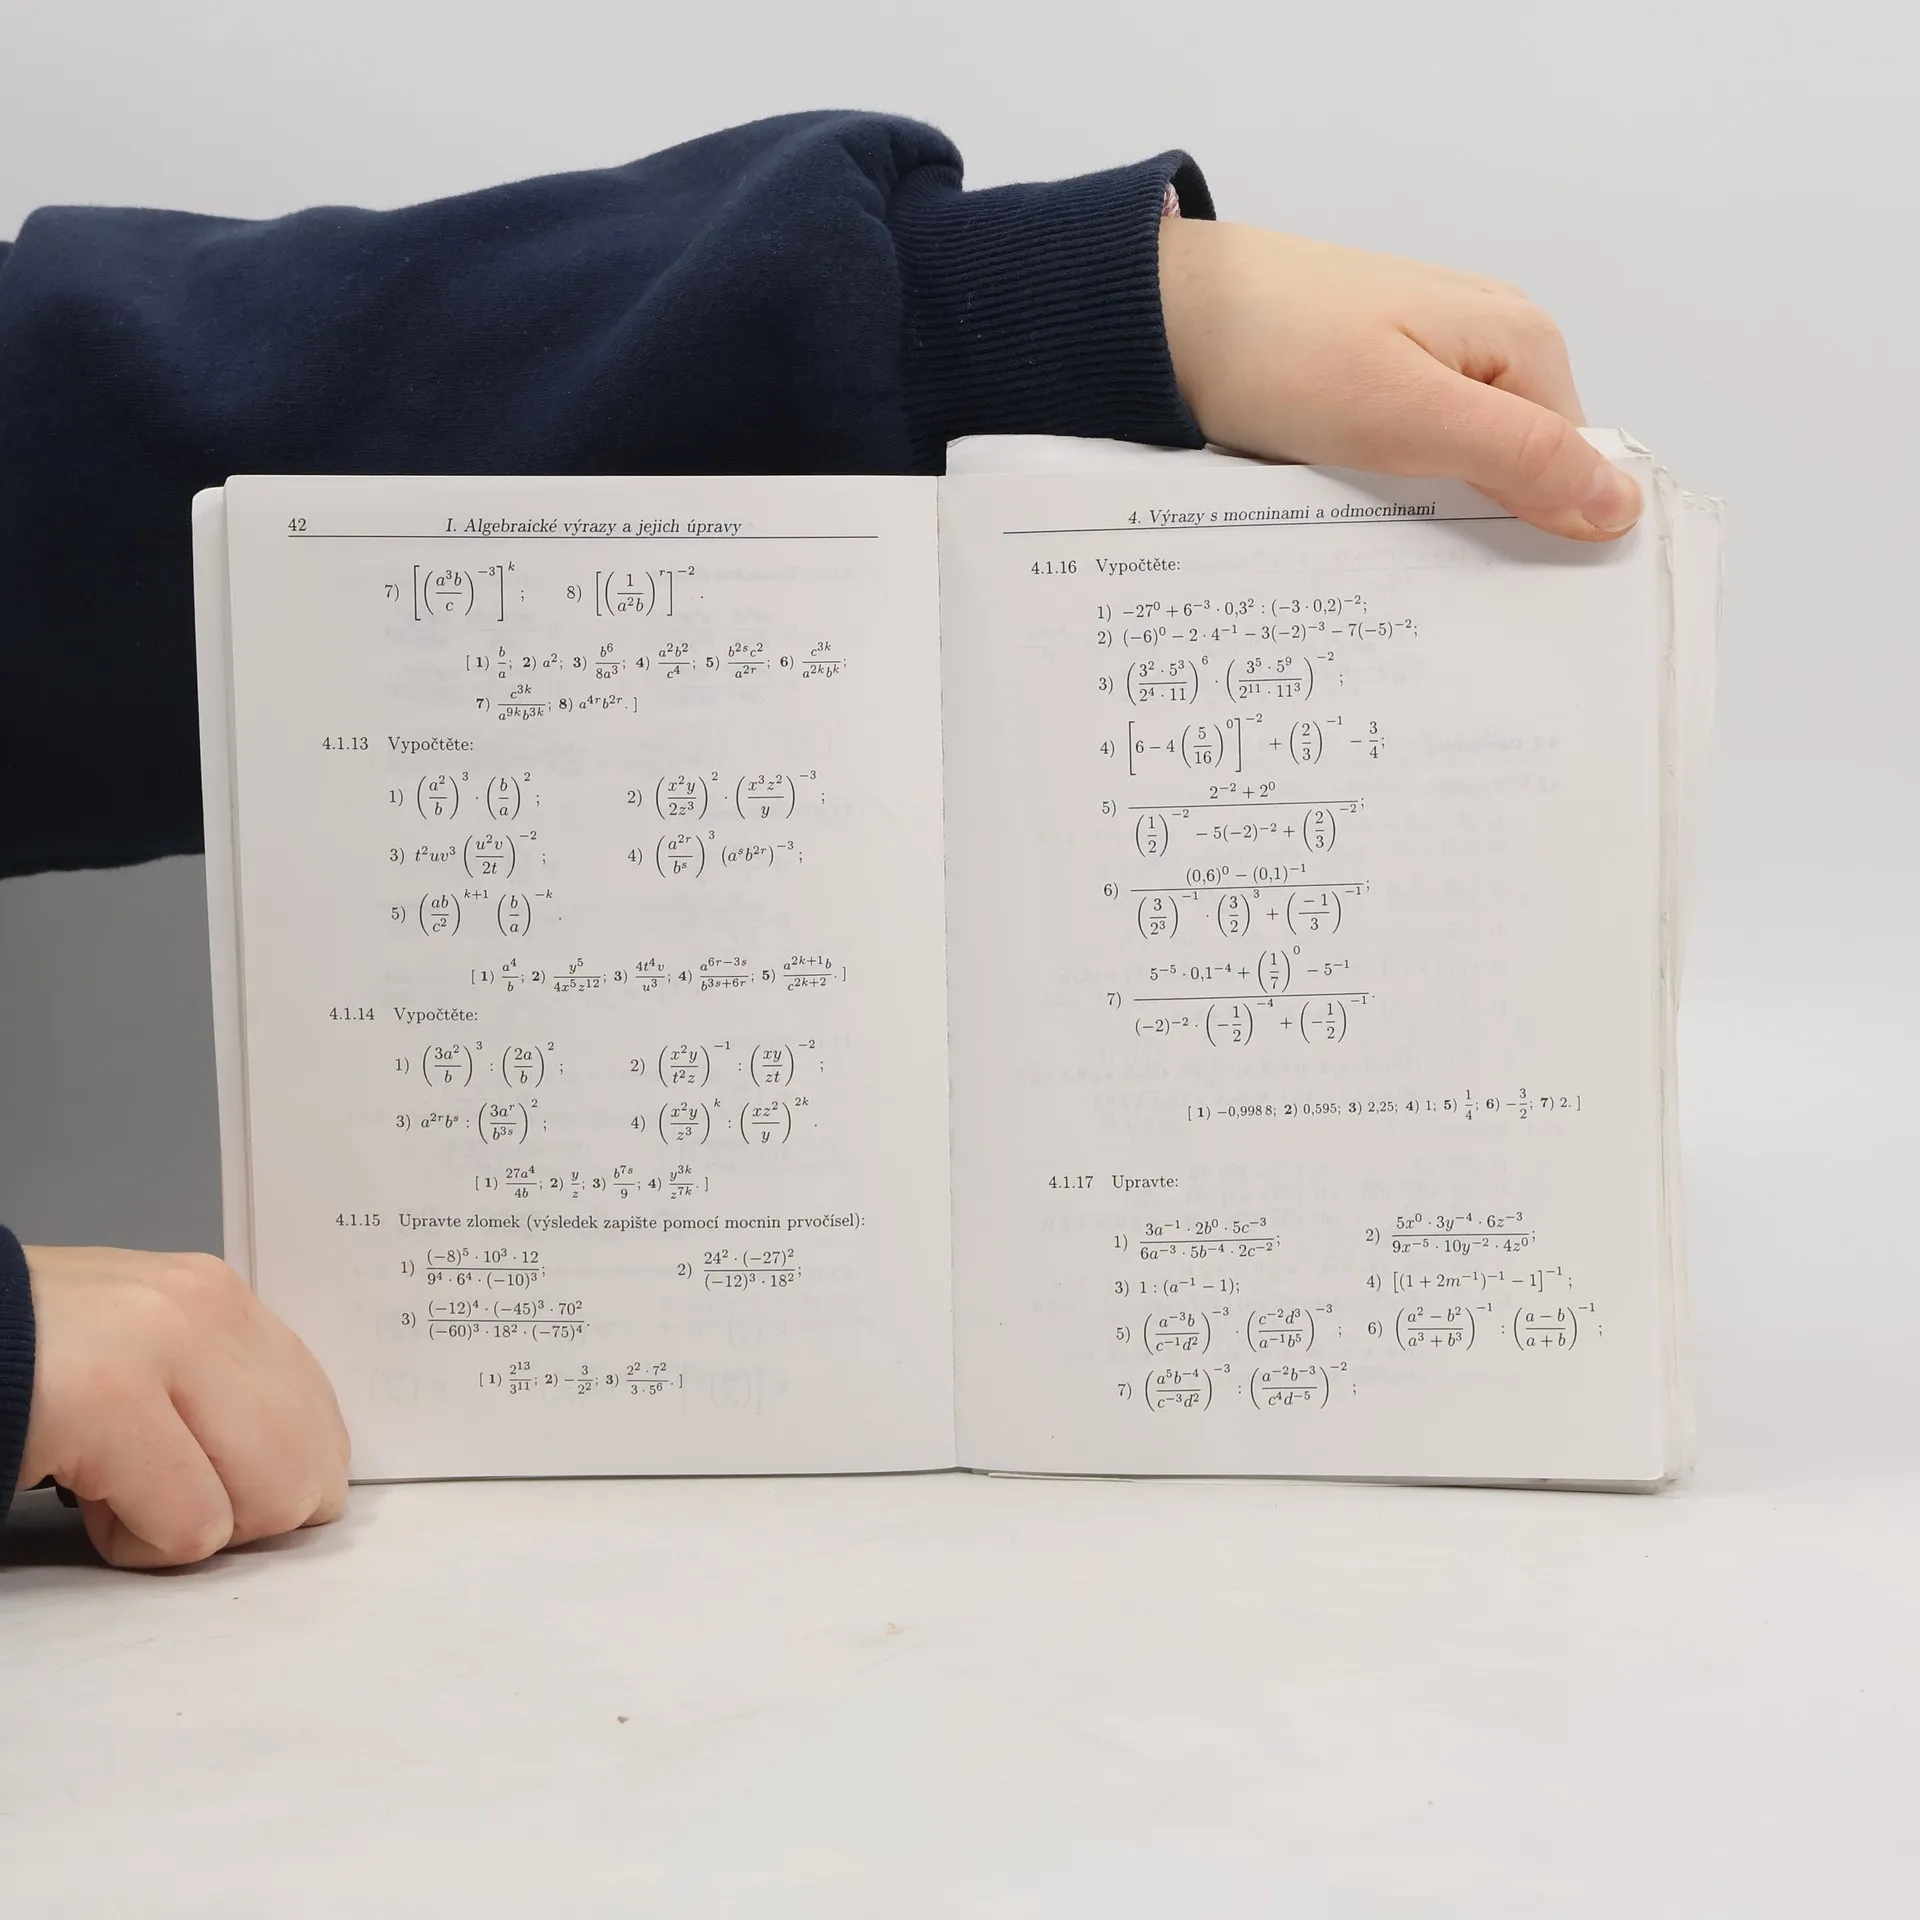 42 I. Algebraické výrazy a jejich úpravy
7) [((a³b)/c)⁻³]ᵏ; 8) [(1/(a²b))ʳ]⁻².
[ 1) b/a; 2) a²; 3) b⁶/(8a³); 4) (a²b²)/c⁴; 5) (b²ˢc²)/a²ʳ; 6) c³ᵏ/(a²ᵏbᵏ);
7) c³ᵏ/(a⁹ᵏb³ᵏ); 8) a⁴ʳb²ʳ. ]
4.1.13 Vypočtěte:
1) (a²/b)³ · (b/a)²; 2) ((x²y)/(2z³))² · ((x³z²)/y)⁻³;
3) t²uv³ ((u²v)/(2t))⁻²; 4) (a²ʳ/bˢ)³ (aˢb²ʳ)⁻³;
5) ((ab)/c²)ᵏ⁺¹ (b/a)⁻ᵏ.
[ 1) a⁴/b; 2) y⁵/(4x⁵z¹²); 3) (4t⁴v)/u³; 4) a⁶ʳ⁻³ˢ/b³ˢ⁺⁶ʳ; 5) (a²ᵏ⁺¹b)/c²ᵏ⁺². ]
4.1.14 Vypočtěte:
1) ((3a²)/b)³ : ((2a)/b)²; 2) ((x²y)/(t²z))⁻¹ : ((xy)/(zt))⁻²;
3) a²ʳbˢ : ((3aʳ)/b³ˢ)²; 4) ((x²y)/z³)ᵏ : ((xz²)/y)²ᵏ.
[ 1) (27a⁴)/(4b); 2) y/z; 3) b⁷ˢ/9; 4) y³ᵏ/z⁷ᵏ. ]
4.1.15 Upravte zlomek (výsledek zapište pomocí mocnin prvočísel):
1) ((−8)⁵ · 10³ · 12)/(9⁴ · 6⁴ · (−10)³); 2) (24² · (−27)²)/((−12)³ · 18²);
3) ((−12)⁴ · (−45)³ · 70²)/((−60)³ · 18² · (−75)⁴).
[ 1) 2¹³/3¹¹; 2) −3/2²; 3) (2² · 7²)/(3 · 5⁶). ]
4. Výrazy s mocninami a odmocninami
4.1.16 Vypočtěte:
1) −27⁰ + 6⁻³ · 0,3² : (−3 · 0,2)⁻²;
2) (−6)⁰ − 2 · 4⁻¹ − 3(−2)⁻³ − 7(−5)⁻²;
3) ((3² · 5³)/(2⁴ · 11))⁶ · ((3⁵ · 5⁹)/(2¹¹ · 11³))⁻²;
4) [6 − 4 (5/16)⁰]⁻² + (2/3)⁻¹ − 3/4;
5) (2⁻² + 2⁰)/((1/2)⁻² − 5(−2)⁻² + (2/3)⁻²);
6) ((0,6)⁰ − (0,1)⁻¹)/((3/2³)⁻¹ · (3/2)³ + (−1/3)⁻¹);
7) (5⁻⁵ · 0,1⁻⁴ + (1/7)⁰ − 5⁻¹)/((−2)⁻² · (−1/2)⁻⁴ + (−1/2)⁻¹).
[ 1) −0,998 8; 2) 0,595; 3) 2,25; 4) 1; 5) 1/4; 6) −3/2; 7) 2. ]
4.1.17 Upravte:
1) (3a⁻¹ · 2b⁰ · 5c⁻³)/(6a⁻³ · 5b⁻⁴ · 2c⁻²); 2) (5x⁰ · 3y⁻⁴ · 6z⁻³)/(9x⁻⁵ · 10y⁻² · 4z⁰);
3) 1 : (a⁻¹ − 1); 4) [(1 + 2m⁻¹)⁻¹ − 1]⁻¹;
5) ((a⁻³b)/(c⁻¹d²))⁻³ · ((c⁻²d³)/(a⁻¹b⁵))⁻³; 6) ((a² − b²)/(a³ + b³))⁻¹ : ((a − b)/(a + b))⁻¹;
7) ((a⁵b⁻⁴)/(c⁻³d²))⁻³ : ((a⁻²b⁻³)/(c⁴d⁻⁵))⁻²;